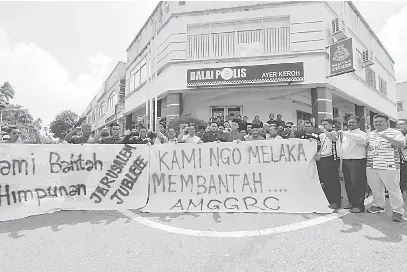 BALAI POLIS
AYER KEROH
ami Bantah
Himpunan
JARUSALEM
JUBLEE
KAMI NGO MELAKA
MEMBANTAH....
AMGGRC